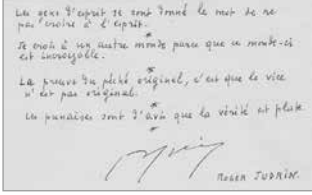 Les gens d'esprit se sont donné le mot de ne
pas croire à l'esprit.
*
Je crois à un autre monde parce que ce monde-ci
est incroyable.
*
La preuve du péché originel, c'est que le vice
n'est pas original.
*
Les punaises sont d'avis que la vérité est plate.
ROGER JUDRIN.